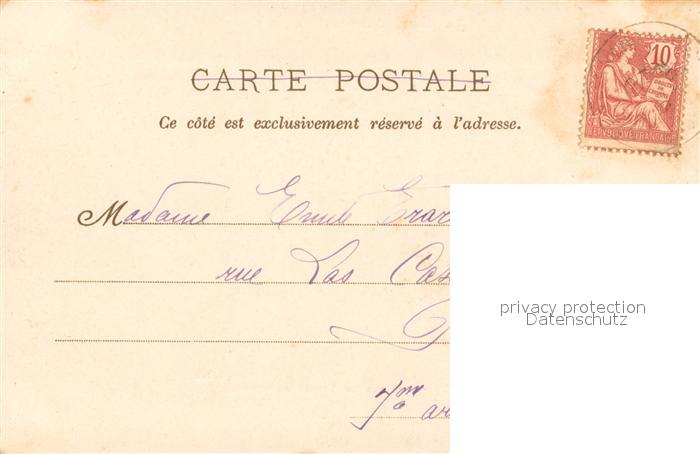 CARTE POSTALE
Ce côté est exclusivement réservé à l'adresse.
10
REPVBLIQVE FRANÇAISE
Madame Emile Erar
rue Las Cas
7me ar
privacy protection
Datenschutz